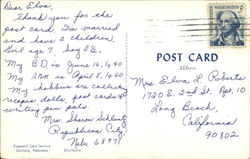 Dear Elva,
Thank you for the
post card. I'm married
and have 2 children,
Girl age 7 boy 5½.
My BD is June 16, 1940
My Ann is April 8, 1960.
My hobbies are collecting
recipes, dolls, post cards &
writing pen pals.
Mrs. Sharon
Republican City,
Nebr 68971
POST CARD
Address
Mrs. Elva L Roberts
1720 E. 2nd St. Apt. 10
Long Beach,
California
90802